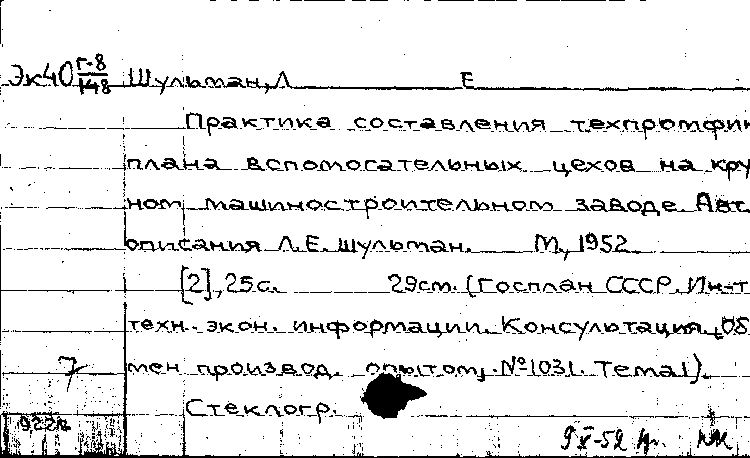 Эк40 Г-8/148 Шульман, Л Е
Практика составления техпромфин
плана вспомогательных цехов на кру
ном машиностроительном заводе. Авт.
описания Л.Е. Шульман. М., 1952
[2], 25с. 29см. (Госплан СССР. Ин-т
техн.-экон. информации. Консультация, Об
мен производ. опытом. №1031. Тема1).
7
Стеклогр.
9 X-52